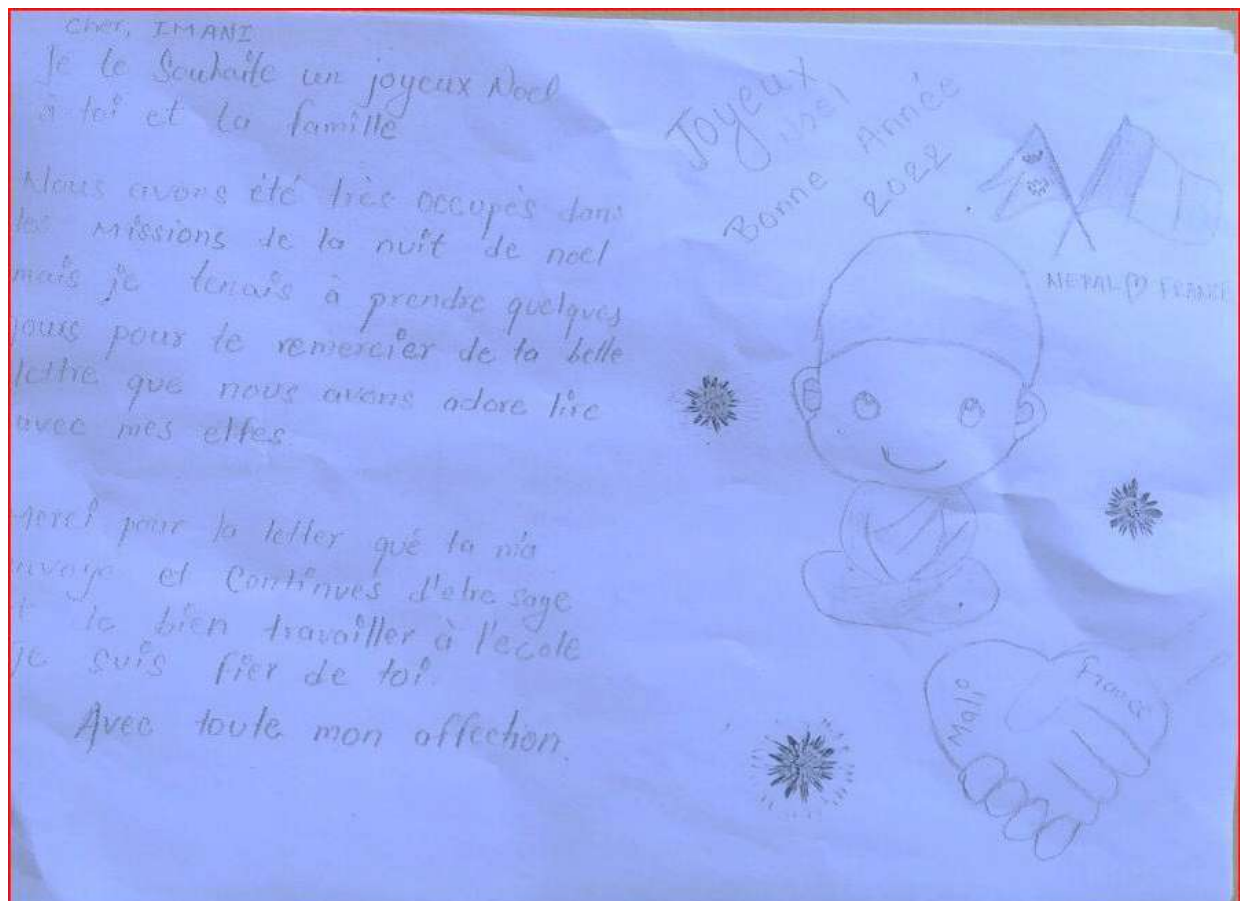 Cher, IMANI
Je te Souhaite un joyeux Noel
à toi et ta famille
Nous avons été très occupés dans
les Missions de la nuit de noel
mais je tenais à prendre quelques
jours pour te remercier de ta belle
lettre que nous avons adore lire
avec mes elfes.
Merci pour la letter que ta m'a
envoye et Continues d'etre sage
bien travailler à l'ecole
je suis fier de toi.
Avec toute mon affection.
Joyeux
Noel
Bonne Année
2022
NEPAL FRANCE
Mali
France